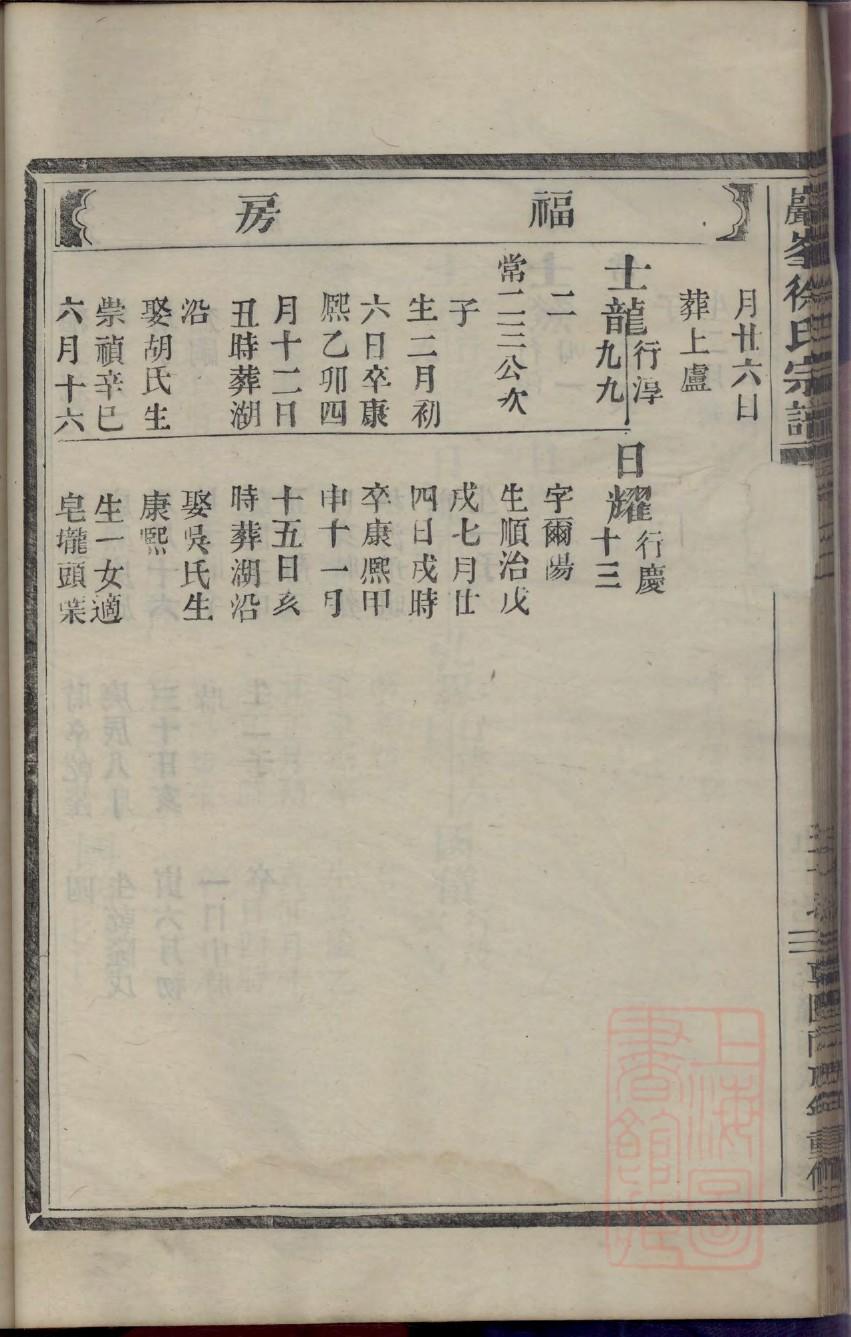 巖峯徐氏宗譜
福房
月廿六日
葬上盧
士龍行淳九九
二
常二三公次
子
生二月初
六日卒康
熈乙卯四
月十二日
丑時葬湖
沿
娶胡氏生
崇禎辛巳
六月十六
日耀行慶十三
字爾陽
生順治戊
戌七月廿
四日戌時
卒康熈甲
申十一月
十五日亥
時葬湖沿
娶吳氏生
康熙
生一女適
皂壠頭葉
上海圖
書館藏